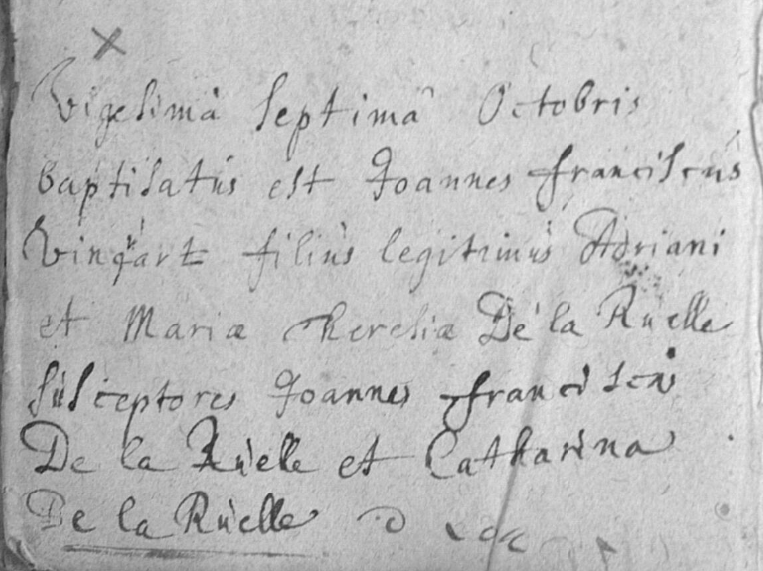 Vigesima septima Octobris
baptisatus est Joannes franciscus
Vinqart filius legitimus Adriani
et Mariæ Theresiæ De la Ruelle
susceptores Joannes franciscus
De la Ruelle et Catharina
De la Ruelle